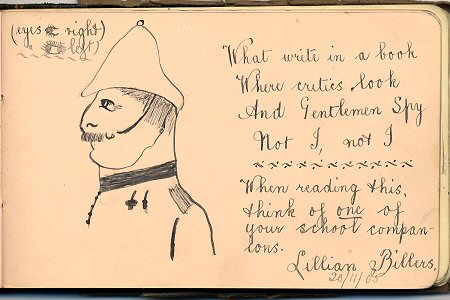 (eyes right)
( " left)
What write in a book
Where critics look
And Gentlemen Spy
Not I, not I
When reading this,
think of one of
your school compan-
ions.
Lillian Billers,
20/11/05